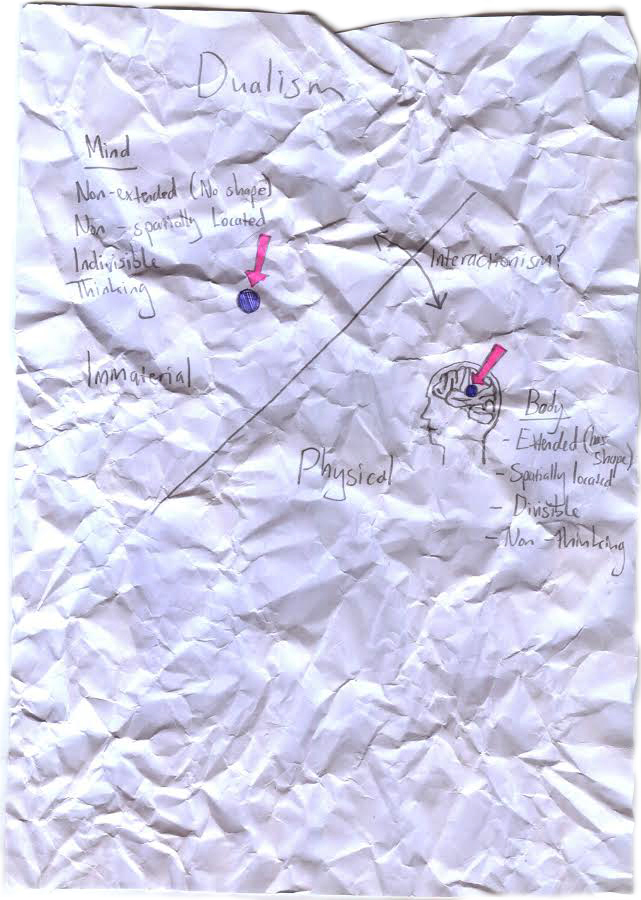 Dualism
Mind
Non-extended (No shape)
Non - spatially Located
Indivisible
Thinking
Immaterial
Interactionism?
Physical
Body
- Extended (has
shape)
- Spatially located
- Divisible
- Non - thinking